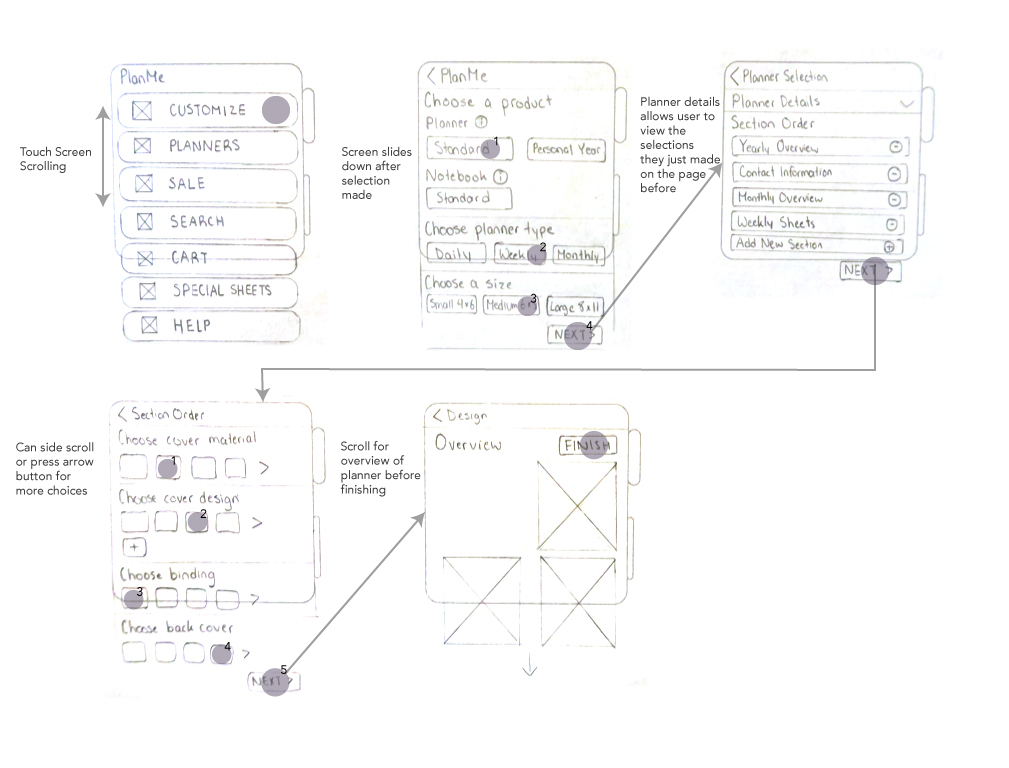 PlanMe
CUSTOMIZE
PLANNERS
SALE
SEARCH
CART
SPECIAL SHEETS
HELP
Touch Screen
Scrolling
< PlanMe
Choose a product
Planner i
Standard 1 Personal Year
Notebook i
Standard
Choose planner type
Daily Weekly 2 Monthly
Choose a size
Small 4x6 Medium 3 Large 8x11
NEXT > 4
Screen slides
down after
selection
made
Planner details
allows user to
view the
selections
they just made
on the page
before
< Planner Selection
Planner Details
Section Order
Yearly Overview
Contact Information
Monthly Overview
Weekly Sheets
Add New Section
NEXT >
Can side scroll
or press arrow
button for
more choices
< Section Order
Choose cover material
1 >
Choose cover design
2 >
+
Choose binding
3 >
Choose back cover
4 >
NEXT > 5
Scroll for
overview of
planner before
finishing
< Design
Overview FINISH